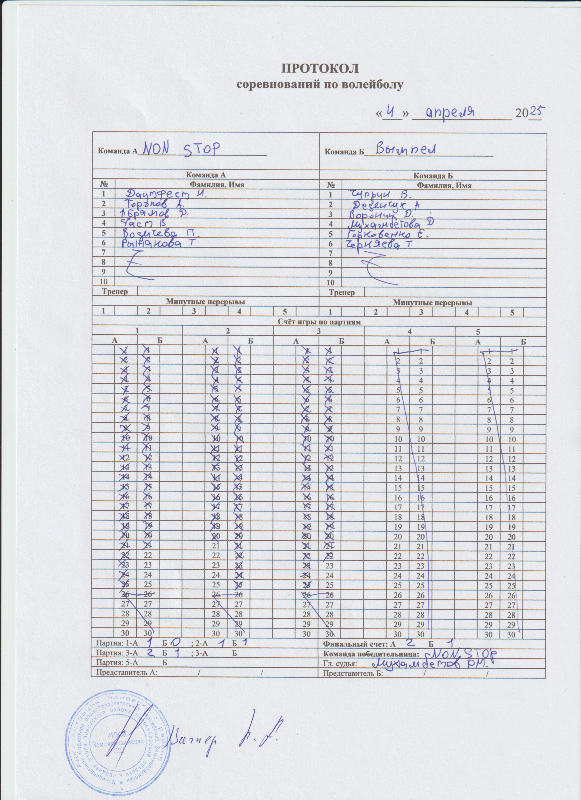 ПРОТОКОЛ
соревнований по волейболу
«4» апреля 2025
Команда А NON STOP Команда Б Вымпел
Команда А Команда Б
№ Фамилия, Имя № Фамилия, Имя
1 И. 1 Чуприн В.
2 Горьков А. 2 А
3 Абрамов Д. 3 Воронин Д.
4 Гаст В. 4 Мухаметова О
5 П. 5 Горковенко С.
6 Рыжакова Т 6 Черняева Т.
7 7
8 8
9 9
10 10
Тренер Тренер
Минутные перерывы Минутные перерывы
1 2 3 4 5 1 2 3 4 5
Счёт игры по партиям
1 2 3 4 5
А Б А Б А Б А Б А Б
1 1 1 1 1 1 1 1 1 1
2 2 2 2 2 2 2 2 2 2
3 3 3 3 3 3 3 3 3 3
4 4 4 4 4 4 4 4 4 4
5 5 5 5 5 5 5 5 5 5
6 6 6 6 6 6 6 6 6 6
7 7 7 7 7 7 7 7 7 7
8 8 8 8 8 8 8 8 8 8
9 9 9 9 9 9 9 9 9 9
10 10 10 10 10 10 10 10 10 10
11 11 11 11 11 11 11 11 11 11
12 12 12 12 12 12 12 12 12 12
13 13 13 13 13 13 13 13 13 13
14 14 14 14 14 14 14 14 14 14
15 15 15 15 15 15 15 15 15 15
16 16 16 16 16 16 16 16 16 16
17 17 17 17 17 17 17 17 17 17
18 18 18 18 18 18 18 18 18 18
19 19 19 19 19 19 19 19 19 19
20 20 20 20 20 20 20 20 20 20
21 21 21 21 21 21 21 21 21 21
22 22 22 22 22 22 22 22 22 22
23 23 23 23 23 23 23 23 23 23
24 24 24 24 24 24 24 24 24 24
25 25 25 25 25 25 25 25 25 25
26 26 26 26 26 26 26 26 26 26
27 27 27 27 27 27 27 27 27 27
28 28 28 28 28 28 28 28 28 28
29 29 29 29 29 29 29 29 29 29
30 30 30 30 30 30 30 30 30 30
Партия: 1-А 1 Б 0 ; 2-А 1 Б 1 Финальный счет: А 2 Б 1
Партия: 3-А 2 Б 1 ; 3-А Б Команда победительница: NON STOP
Партия: 5-А Б Гл. судья: Мухаметов Р.М.
Представитель А: / / Представитель Б: / /
Вагнер К. А.